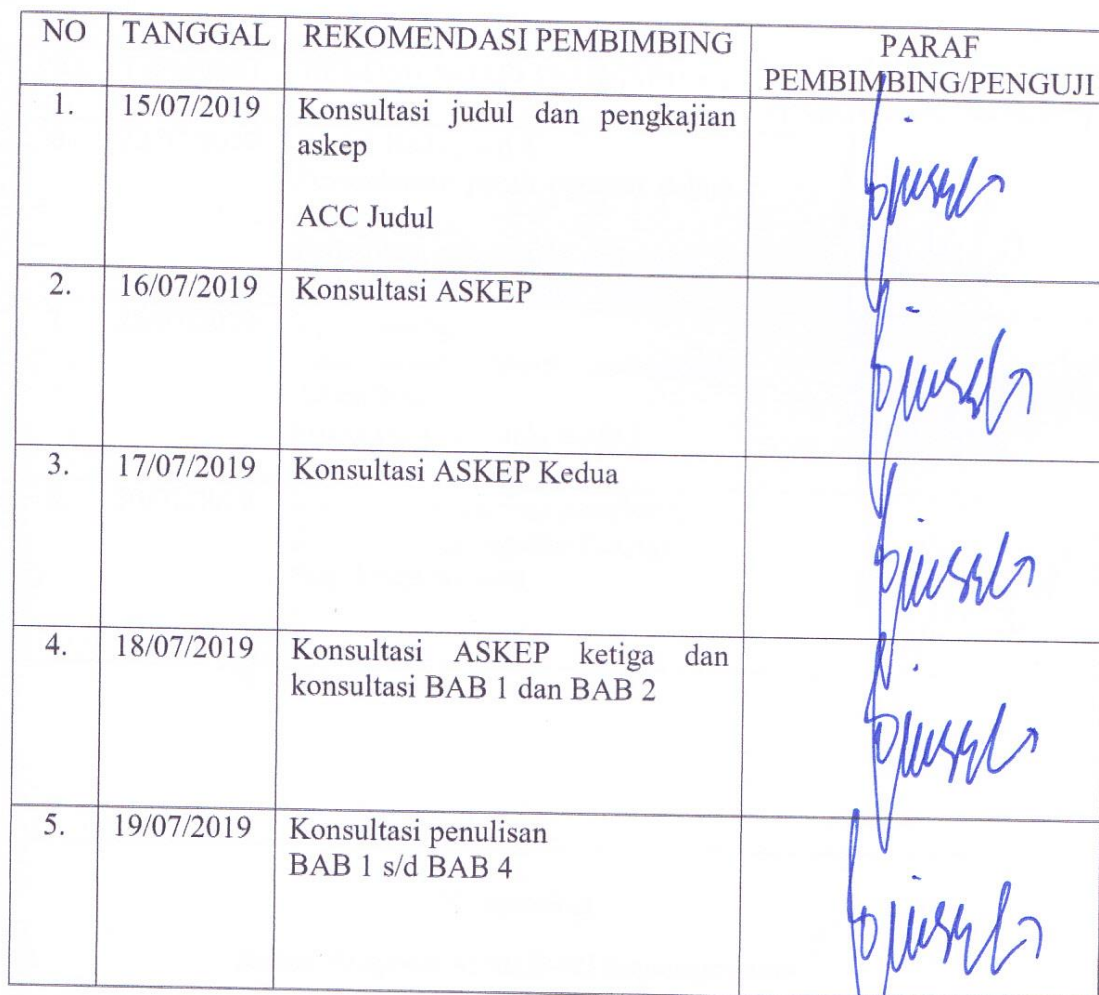 NO TANGGAL REKOMENDASI PEMBIMBING PARAF
PEMBIMBING/PENGUJI
1. 15/07/2019 Konsultasi judul dan pengkajian
askep
ACC Judul
2. 16/07/2019 Konsultasi ASKEP
3. 17/07/2019 Konsultasi ASKEP Kedua
4. 18/07/2019 Konsultasi ASKEP ketiga dan
konsultasi BAB 1 dan BAB 2
5. 19/07/2019 Konsultasi penulisan
BAB 1 s/d BAB 4